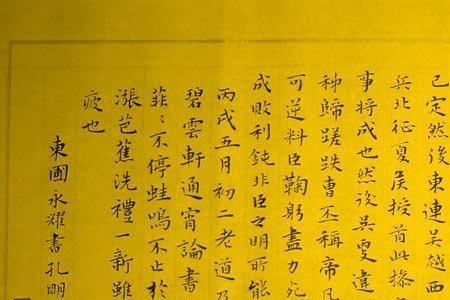 已定然後東連吳越西
兵北征夏侯授首此操
事將成也然後吳更違
秭歸蹉跌曹丕稱帝凡
可逆料臣鞠躬盡力死
成敗利鈍非臣之明所能
丙戌五月初二老道乃
碧雲軒通宵論書
菲〻不停蛙鳴不止於
漲芭蕉洗禮一新雖
疲也
東圃永耀書孔明